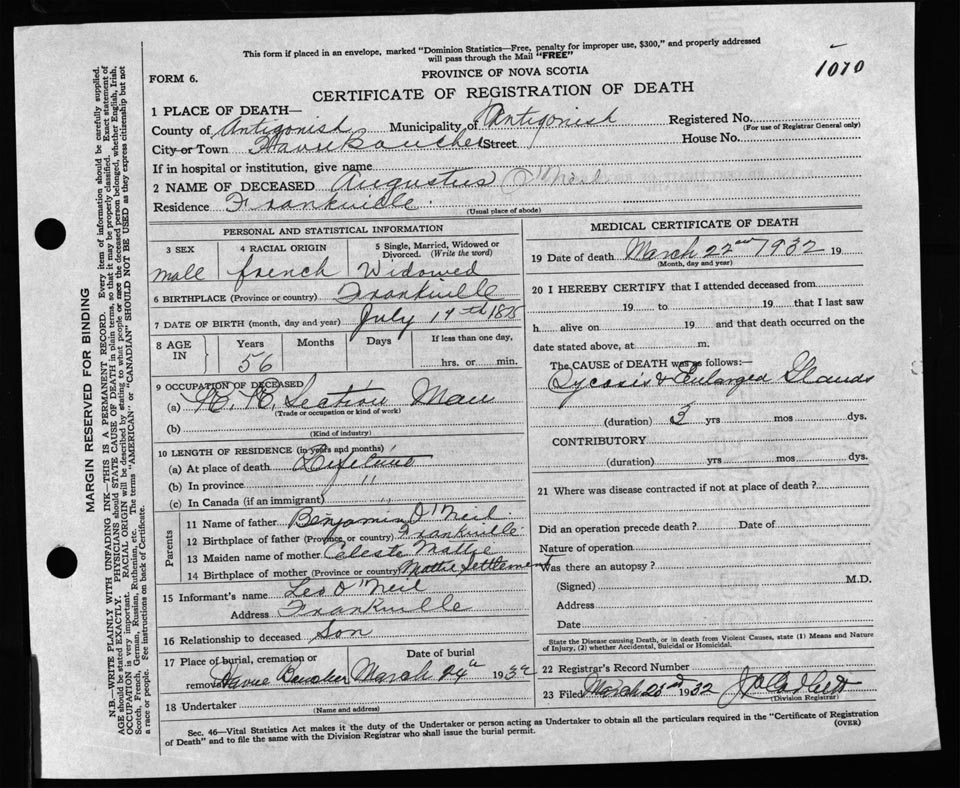 This form if placed in an envelope, marked "Dominion Statistics—Free, penalty for improper use, $300," and properly addressed
will pass through the Mail "FREE"
1070
FORM 6.
PROVINCE OF NOVA SCOTIA
CERTIFICATE OF REGISTRATION OF DEATH
MARGIN RESERVED FOR BINDING
N.B.—WRITE PLAINLY WITH UNFADING INK—THIS IS A PERMANENT RECORD. Every item of information should be carefully supplied.
AGE should be stated EXACTLY. PHYSICIANS should STATE CAUSE OF DEATH in plain terms, so that it may be properly classified. Exact statement of
OCCUPATION is very important. RACIAL ORIGIN will be described by stating to what people or race the deceased person belonged, whether English, Irish,
Scotch, French, German, Russian, Ruthenian, etc. The terms "AMERICAN" or "CANADIAN" SHOULD NOT BE USED as they express citizenship but not
a race or people. See instructions on back of Certificate.
1 PLACE OF DEATH—
County of Antigonish Municipality of Antigonish Registered No.
(For use of Registrar General only)
City or Town Havre Boucher Street House No.
If in hospital or institution, give name
2 NAME OF DECEASED Augustus O'Neil
Residence Frankville
(Usual place of abode)
PERSONAL AND STATISTICAL INFORMATION
3 SEX 4 RACIAL ORIGIN 5 Single, Married, Widowed or
Divorced. (Write the word)
male french Widowed
6 BIRTHPLACE (Province or country) Frankville
7 DATE OF BIRTH (month, day and year) July 14th 1875
8 AGE IN Years Months Days If less than one day,
56 hrs. or min.
9 OCCUPATION OF DECEASED
(a) R. R. Section Man
(Trade or occupation or kind of work)
(b)
(Kind of industry)
10 LENGTH OF RESIDENCE (in years and months)
(a) At place of death Lifetime
(b) In province "
(c) In Canada (if an immigrant) "
Parents
11 Name of father Benjamin O'Neil
12 Birthplace of father (Province or country) Frankville
13 Maiden name of mother Celeste Mattie
14 Birthplace of mother (Province or country) Mattie Settlement
15 Informant's name Leo O'Neil
Address Frankville
16 Relationship to deceased Son
17 Place of burial, cremation or Date of burial
removal Havre Boucher March 24th 1932
18 Undertaker
(Name and address)
MEDICAL CERTIFICATE OF DEATH
19 Date of death March 22nd 1932 19
(Month, day and year)
20 I HEREBY CERTIFY that I attended deceased from
19 to 19 that I last saw
h alive on 19 and that death occurred on the
date stated above, at m.
The CAUSE OF DEATH was as follows:—
Sycosis & Enlarged Glands
(duration) 3 yrs mos dys.
CONTRIBUTORY
(duration) yrs mos dys.
21 Where was disease contracted if not at place of death?
Did an operation precede death? Date of
Nature of operation
Was there an autopsy?
(Signed) M.D.
Address
Date
State the Disease causing Death, or in death from Violent Causes, state (1) Means and Nature
of Injury, (2) whether Accidental, Suicidal or Homicidal.
22 Registrar's Record Number
23 Filed March 23rd 1932
(Division Registrar)
Sec. 46—Vital Statistics Act makes it the duty of the Undertaker or person acting as Undertaker to obtain all the particulars required in the "Certificate of Registration
of Death" and to file the same with the Division Registrar who shall issue the burial permit. (OVER)